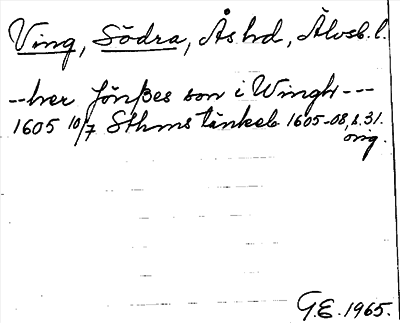 Ving, Södra, Ås hd, Älvsb. l.
--her Jönßes son i Wingh---
1605 10/7 Sthms tänkeb 1605-08, s. 31.
orig.
G.E. 1965.